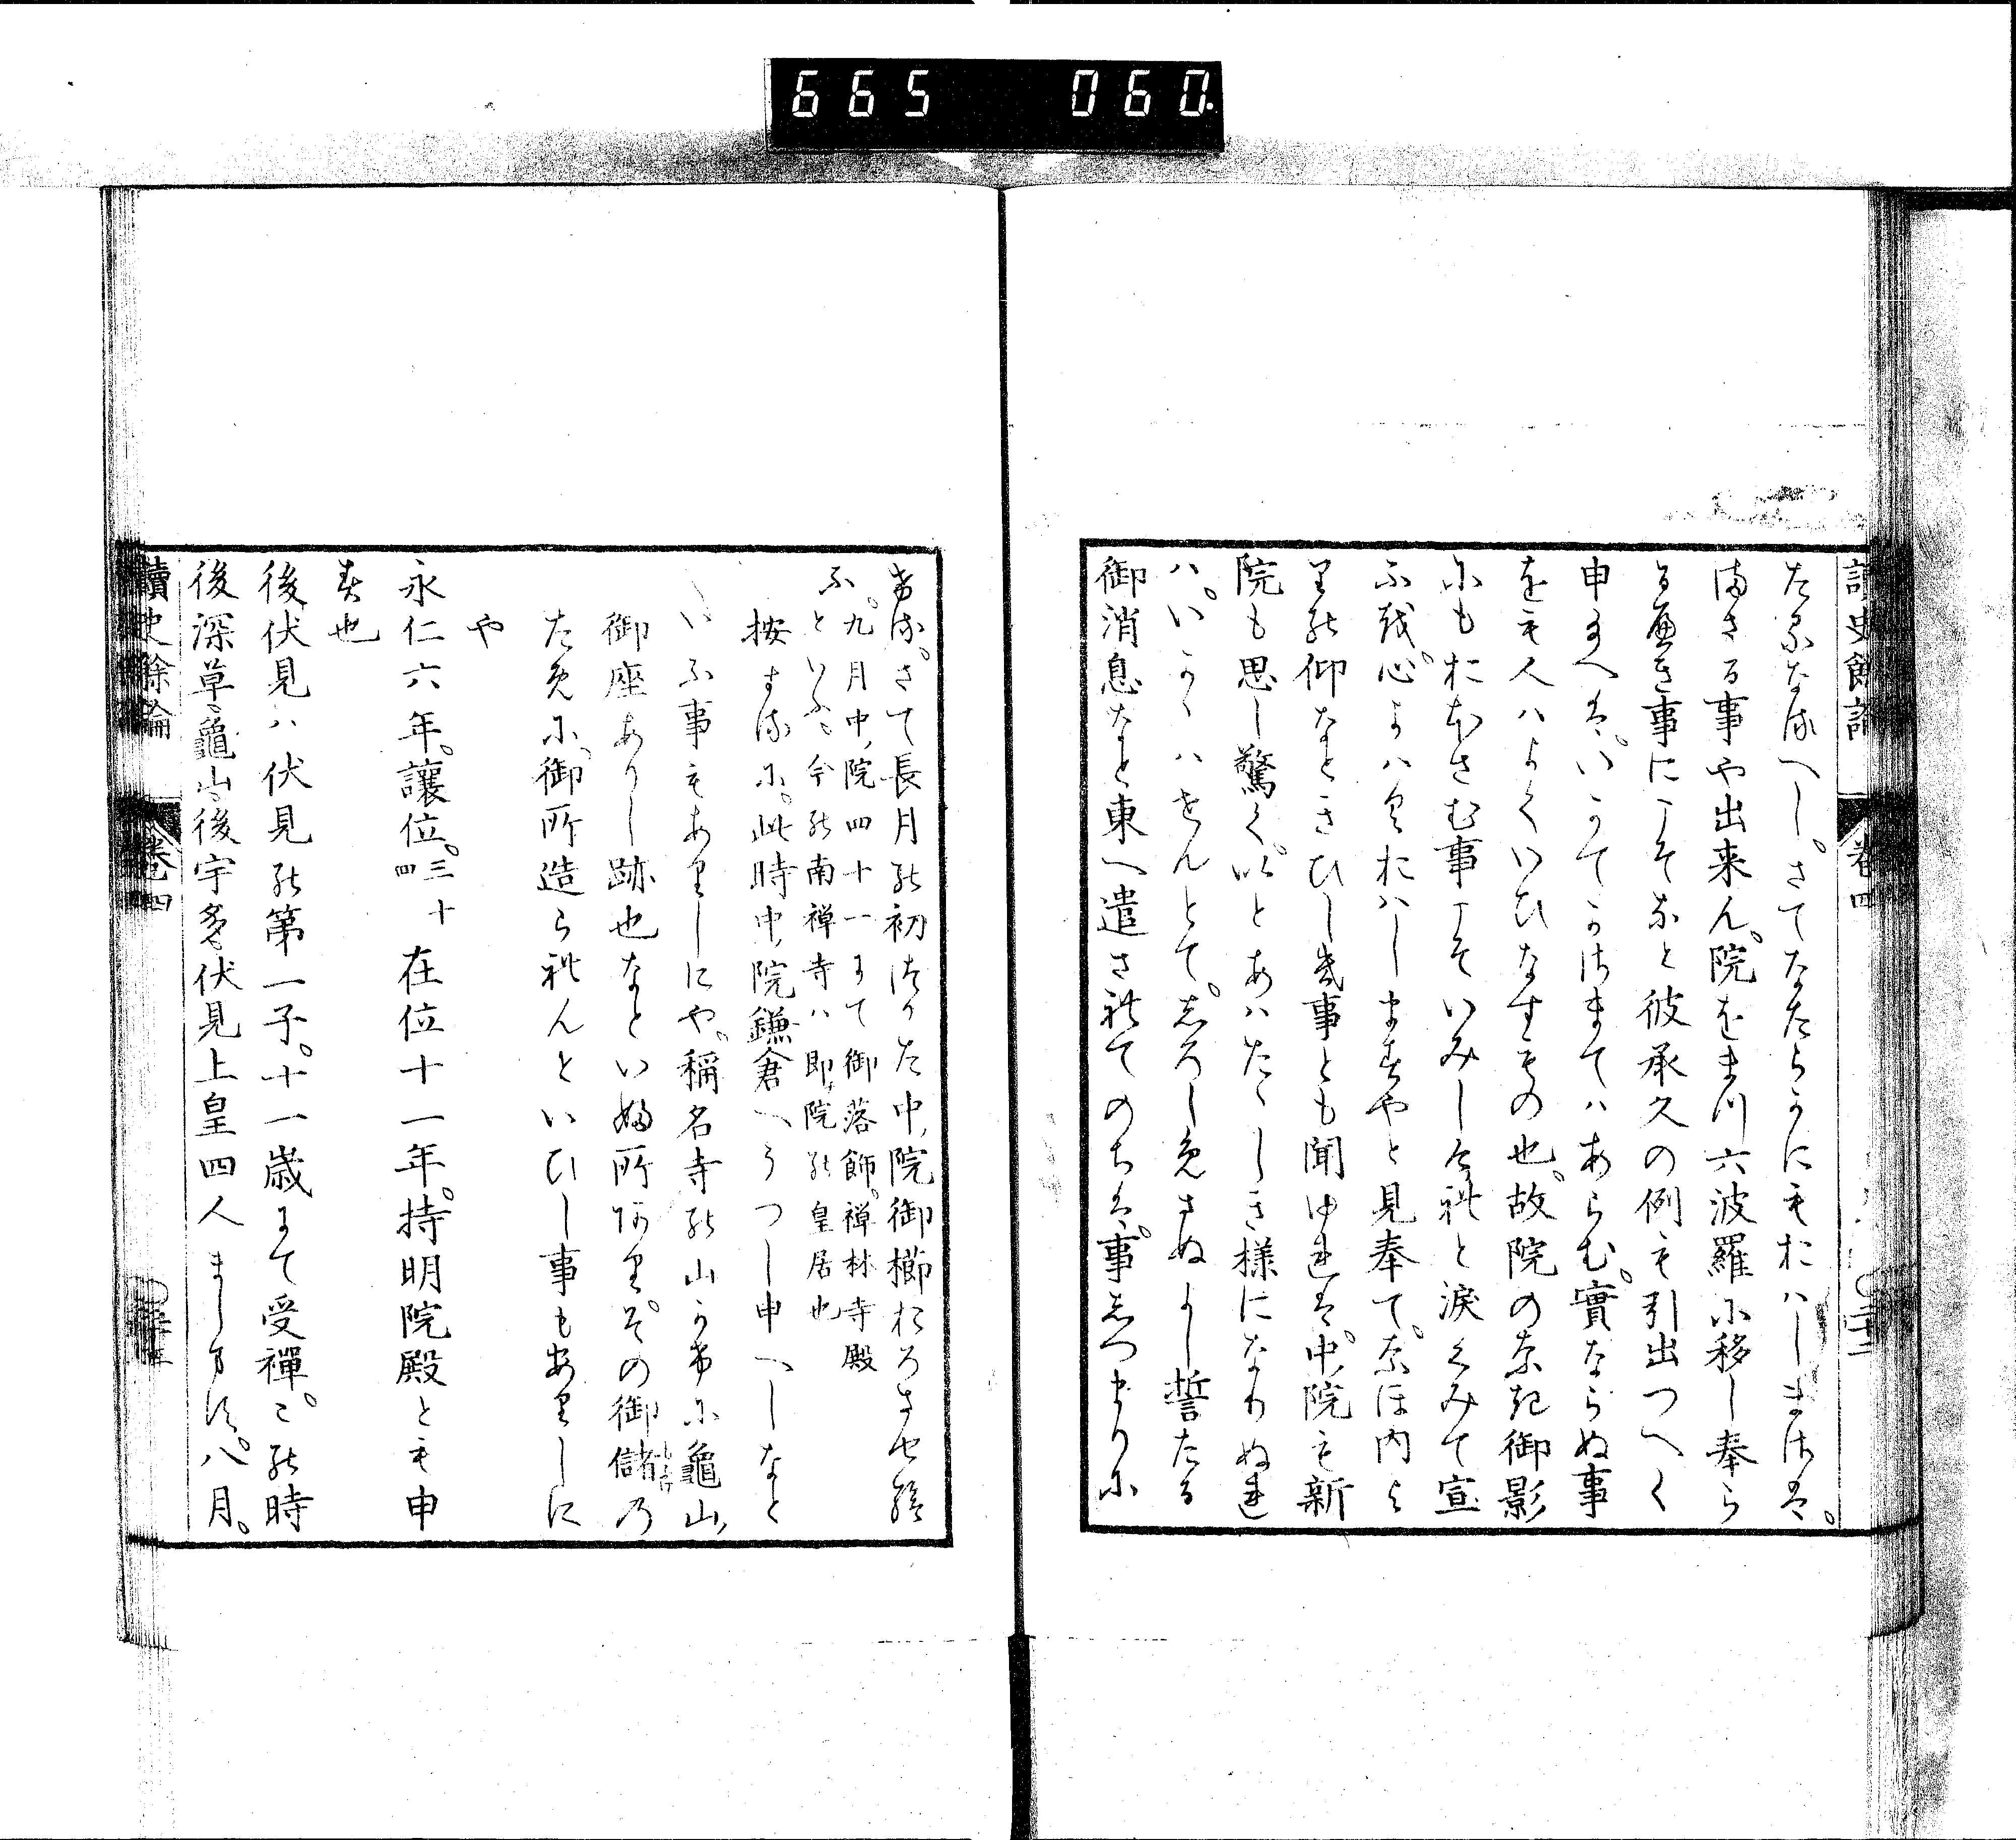 讀史餘論 卷四
たるなるへし。さてなたらかにもおはしまさは。
まさる事や出来ん。院をまつ六波羅に移し奉ら
るへき事にこそなと彼承久の例も引出つへく
申給へは。いかてかさまてはあらむ。實ならぬ事
をも人はよくいひなすもの也。故院のなき御影
にもおほさむ事こそいみしけれと涙くみて宣
ふを。心よはくおはしますやと見奉て。なほ内よ
りの仰なときひしき事とも聞ゆれは。中院も新
院も思し驚く。いとあはたゝしき様になりぬれ
は。いかゝはせんとて。しろしめさぬよし誓たる
御消息なと東へ遣されてのちそ。事しつまりに
ける。さて長月の初つかた中院御櫛おろさせ給
ふ。九月中院四十一にて御落飾。禅林寺殿
といふ。今の南禅寺ハ即院の皇居也
按するに。此時中院鎌倉へうつし申へしなと
いふ事もありしにや。稱名寺の山かけに龜山
御座ありし跡也なといふ所あり。その御儲の
ために。御所造られんといひし事もありしに
や
永仁六年。讓位。三十四在位十一年。持明院殿とも申
す也
後伏見ハ伏見の第一子。十一歳にて受禪。この時
後深草龜山後宇多伏見上皇四人まします。八月。
讀史餘論 卷四